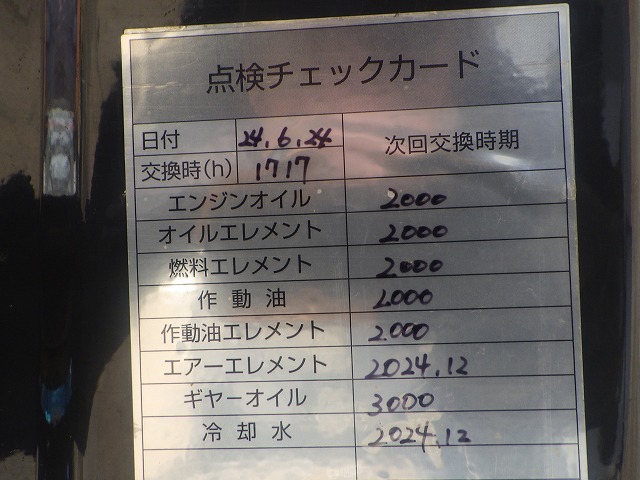 点検チェックカード
日付 24.6.24 次回交換時期
交換時(h) 1717
エンジンオイル 2000
オイルエレメント 2000
燃料エレメント 2000
作動油 2000
作動油エレメント 2000
エアーエレメント 2024.12
ギヤーオイル 3000
冷却水 2024.12